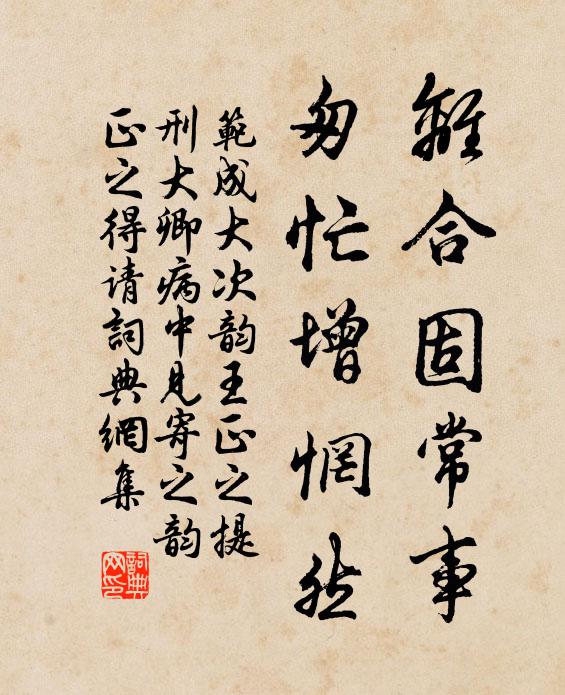 離合固常事
匆忙增惘然
範成大次韵王正之提
刑大卿病中見寄之韵
正之得请詞典網集
詞典网印